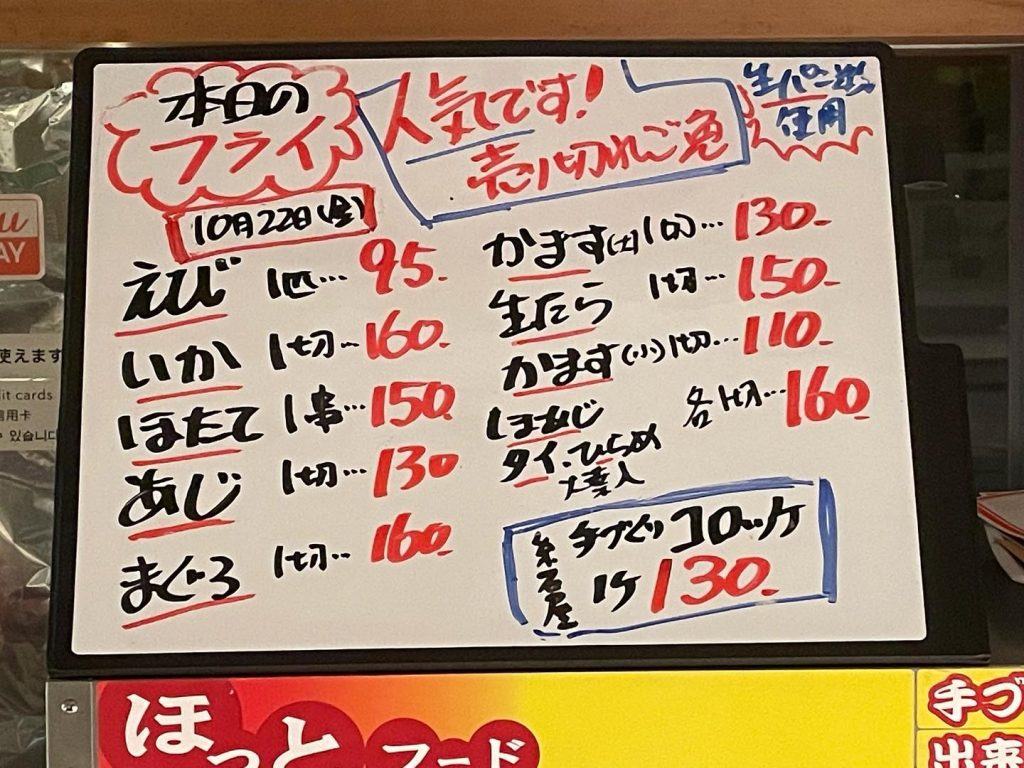 本日の
フライ
人気です!
売り切れご免
生パン粉
使用
10月22日(金)
えび 1匹… 95.
いか 1切… 160.
ほたて 1串… 150.
あじ 1切… 130
まぐろ 1切… 160.
かます(大)1切… 130.
生たら 1切… 150.
かます(小)1切… 110.
ほあじ
タイ・ひらめ 各1切… 160.
大葉入
手づくり コロッケ
1ケ 130.
使えます
dit cards
信用卡
수 있습니다
AY
ほっとフード
手づ
出来